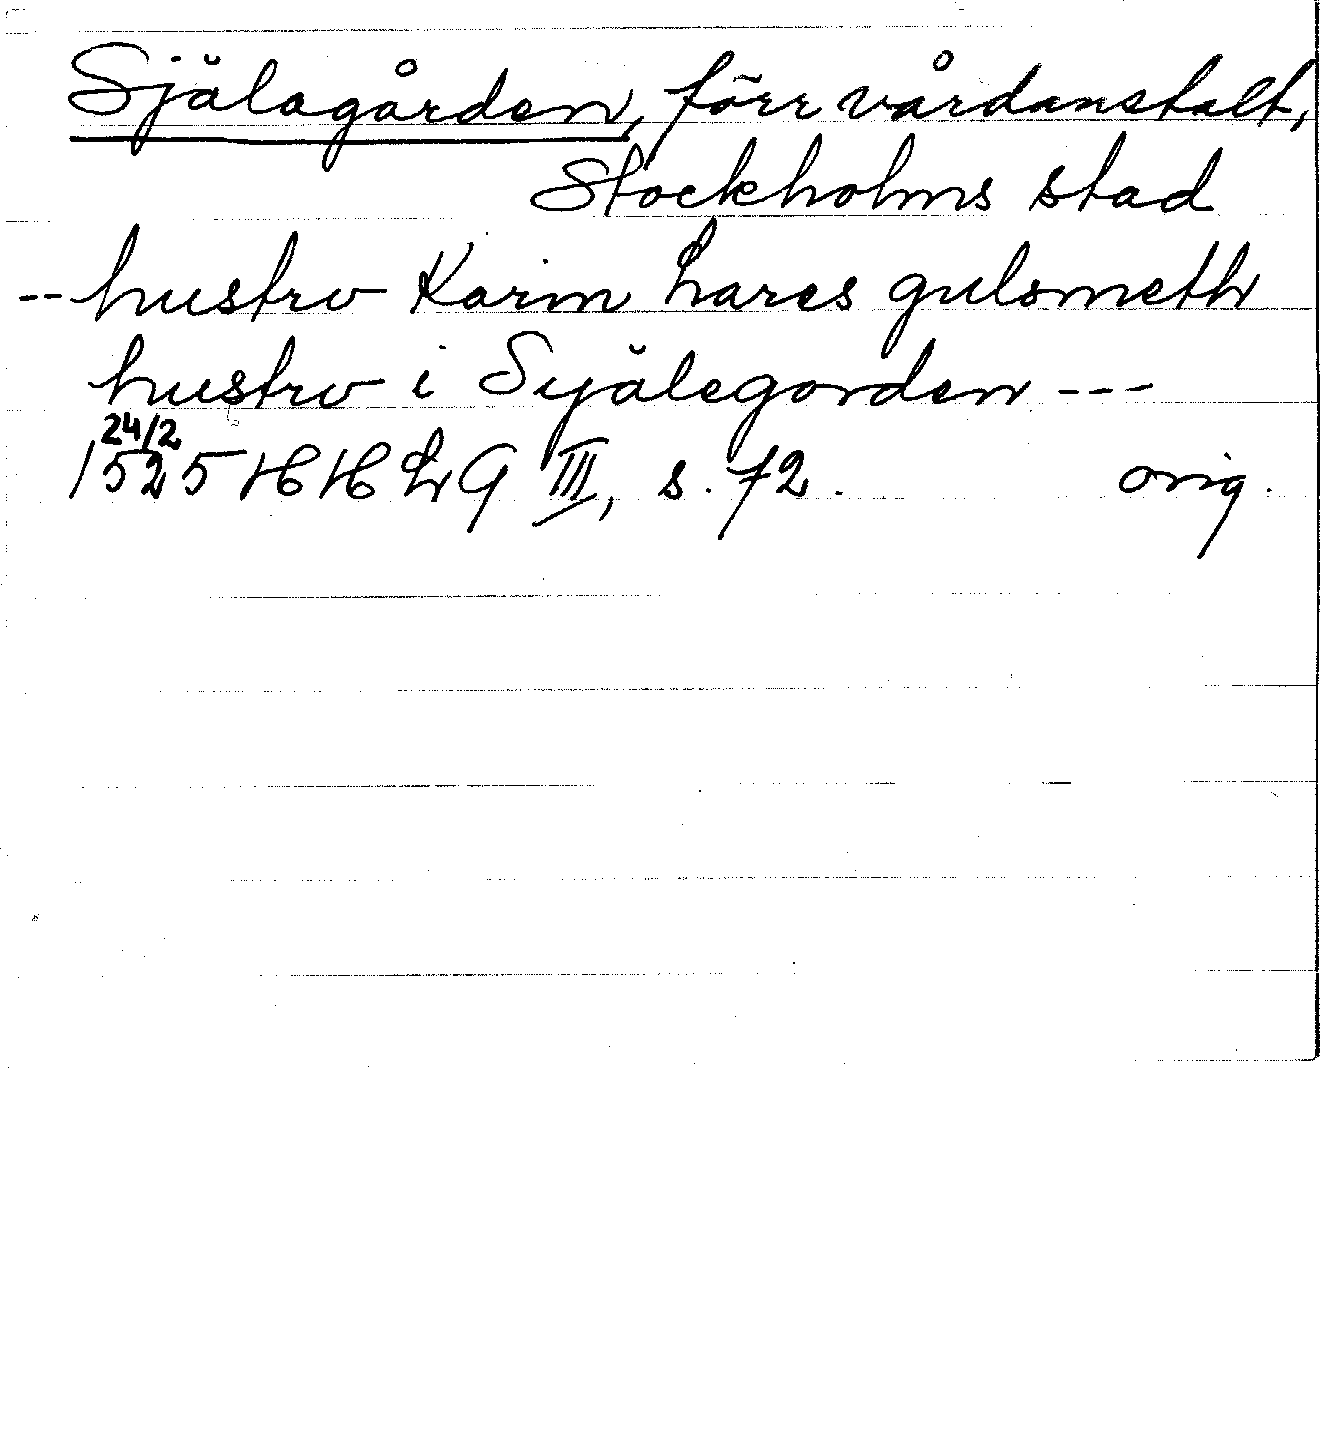 Själagården, förr vårdanstalt,
Stockholms stad
-- hustrv Karin Lares gulsmeth
hustrv i Syälegorden ---
24/2
1525 HH LG III, s. 72. orig.